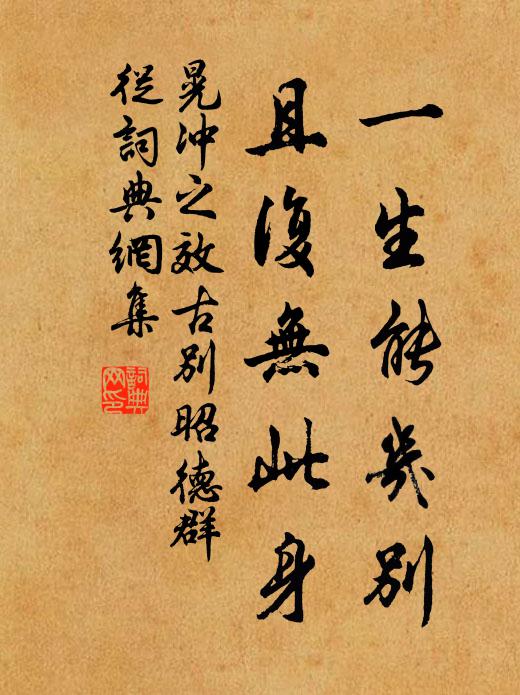 一生能幾別
且復無此身
晁冲之效古別昭德群
從詞典網集
詞典网印